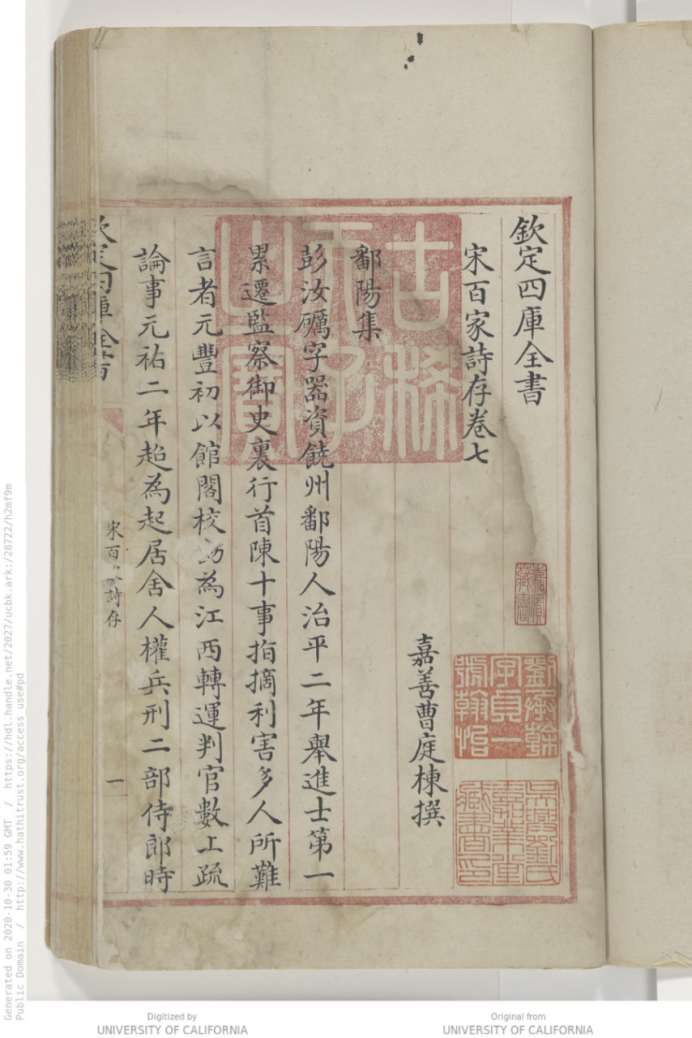 欽定四庫全書
宋百家詩存卷七
嘉善曹庭棟撰
鄱陽集
彭汝礪字器資饒州鄱陽人治平二年舉進士第一
累遷監察御史裏行首陳十事指摘利害多人所難
言者元豐初以館閣校為江西轉運判官數上疏
論事元祐二年起為起居舍人權兵刑二部侍郎時
宋百詩存
一
古稀
天子
之寶
劉承幹
字貞一
號翰怡
吳興劉氏
嘉業堂
藏書印
Generated on 2020-10-30 01:59 GMT / https://hdl.handle.net/2027/ucbk.ark:/28722/h2mf9m
Public Domain / http://www.hathitrust.org/access_use#pd
Digitized by
UNIVERSITY OF CALIFORNIA
Original from
UNIVERSITY OF CALIFORNIA